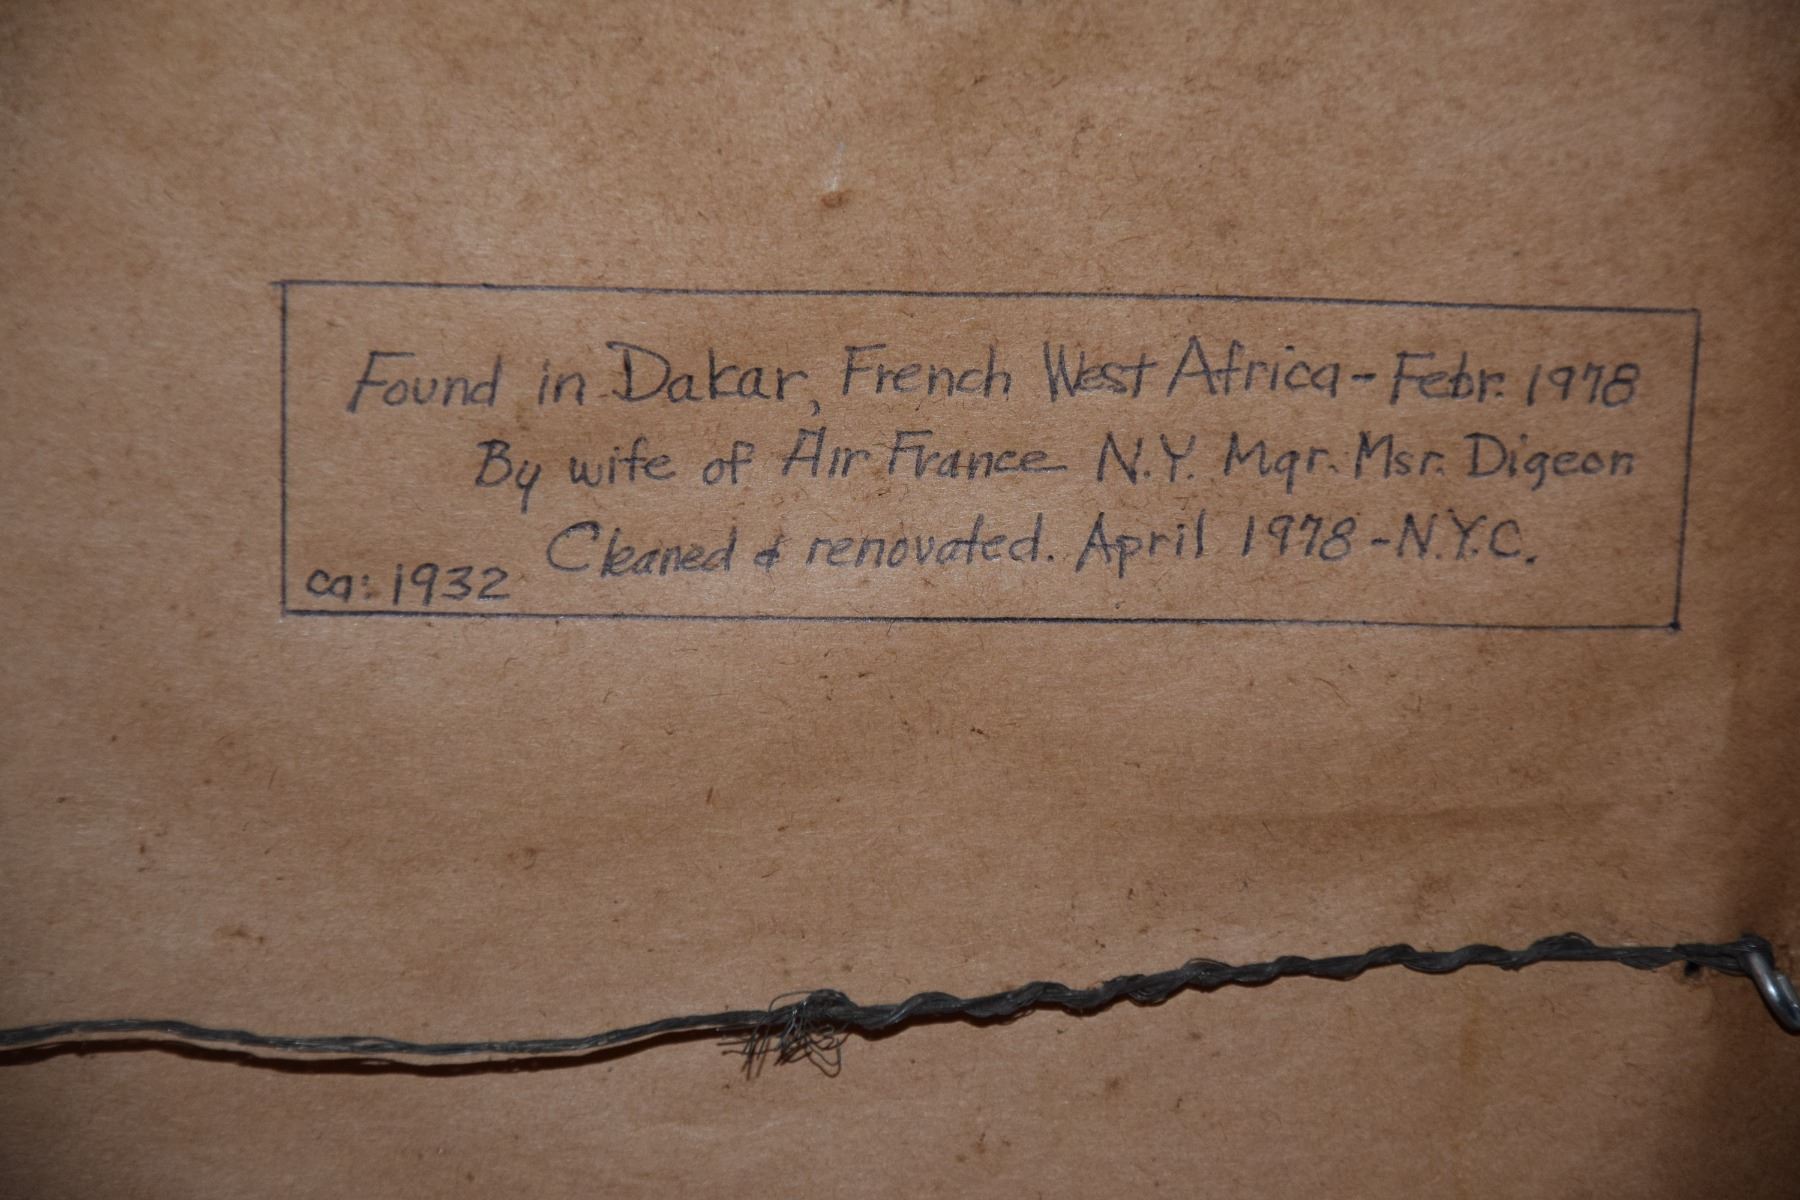 Found in Dakar, French West Africa - Febr. 1978
By wife of Air France N.Y. Mgr. Msr. Digeon
Cleaned & renovated. April 1978 - N.Y.C.
ca: 1932